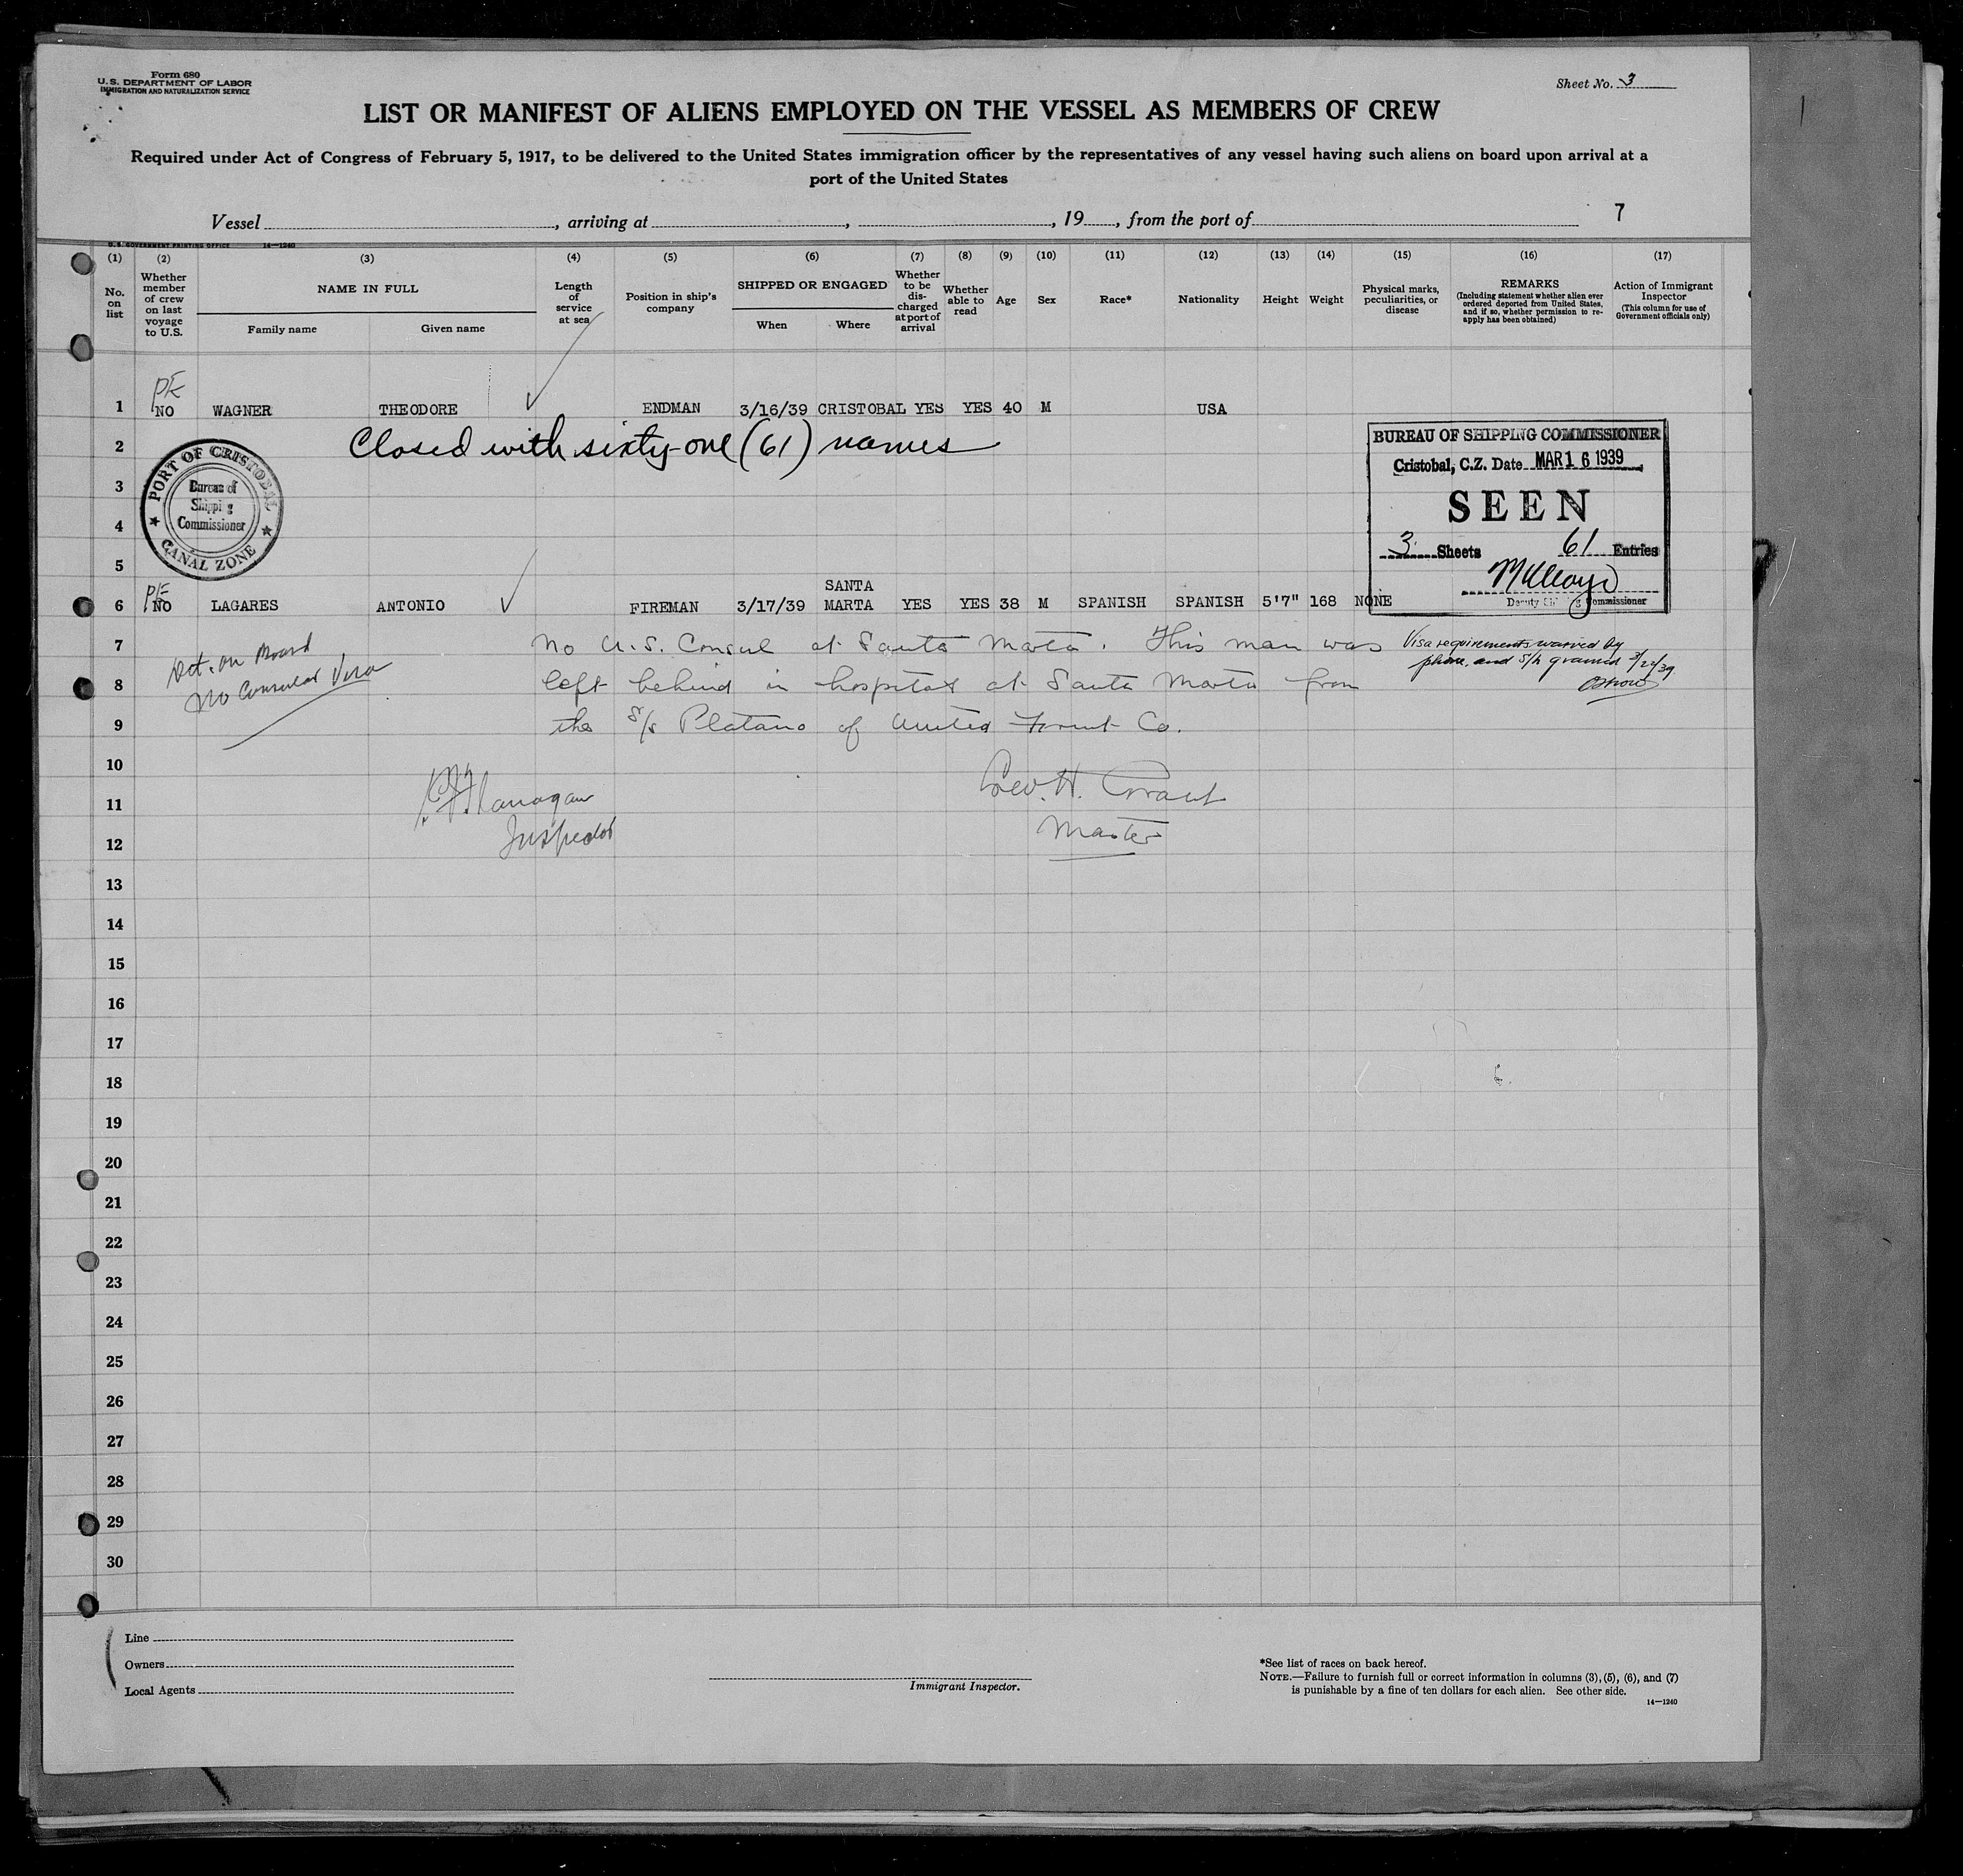 Form 680
U.S. DEPARTMENT OF LABOR
IMMIGRATION AND NATURALIZATION SERVICE
Sheet No. 3
LIST OR MANIFEST OF ALIENS EMPLOYED ON THE VESSEL AS MEMBERS OF CREW
Required under Act of Congress of February 5, 1917, to be delivered to the United States immigration officer by the representatives of any vessel having such aliens on board upon arrival at a
port of the United States
Vessel , arriving at , , 19 , from the port of 7
U.S. GOVERNMENT PRINTING OFFICE 14—1240
(1) (2) (3) (4) (5) (6) (7) (8) (9) (10) (11) (12) (13) (14) (15) (16) (17)
No. on list
Whether member of crew on last voyage to U.S.
NAME IN FULL
Family name Given name
Length of service at sea
Position in ship's company
SHIPPED OR ENGAGED
When Where
Whether to be discharged at port of arrival
Whether able to read
Age
Sex
Race*
Nationality
Height
Weight
Physical marks, peculiarities, or disease
REMARKS
(Including statement whether alien ever ordered deported from United States, and if so, whether permission to re-apply has been obtained)
Action of Immigrant Inspector
(This column for use of Government officials only)
1 NO WAGNER THEODORE ENDMAN 3/16/39 CRISTOBAL YES YES 40 M USA
2 Closed with sixty-one (61) names
PORT OF CRISTOBAL
Bureau of
Shipping
Commissioner
CANAL ZONE
BUREAU OF SHIPPING COMMISSIONER
Cristobal, C.Z. Date MAR 16 1939
SEEN
3 Sheets 61 Entries
Deputy Shipping Commissioner
3
4
5
SANTA
6 NO LAGARES ANTONIO FIREMAN 3/17/39 MARTA YES YES 38 M SPANISH SPANISH 5'7" 168 NONE
Det. on Board
No Consular Visa
7 No U.S. Consul at Santa Marta. This man was
8 left behind in hospital at Santa Marta from
9 the S/S Platano of United Fruit Co.
Visa requirements waived by
phone, and S/L granted 3/22/39
10
Geo. H. Grant
Master
Flanagan
Inspector
11
12
13
14
15
16
17
18
19
20
21
22
23
24
25
26
27
28
29
30
Line
Owners
Local Agents
Immigrant Inspector.
*See list of races on back hereof.
NOTE.—Failure to furnish full or correct information in columns (3), (5), (6), and (7)
is punishable by a fine of ten dollars for each alien. See other side.
14—1240